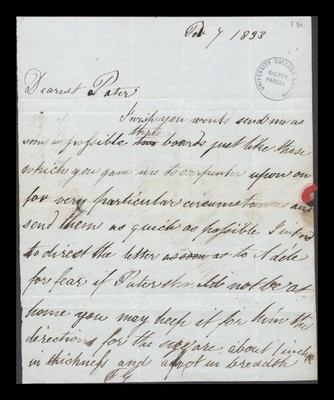 Feb 7 1833
UNIVERSITY COLLEGE
GALTON PAPERS
Dearest Pater
I wish you would send me as
soon as possible three boards just like those
which you gave me to carpenter upon on
for very particular circumstances and
send them as quick as possible I intend
to direct the letter as soon as to Adele
for fear if Pater should not be at
home you may keep it for him the
directions for the are about 1 inch
in thickness and a foot in breadth